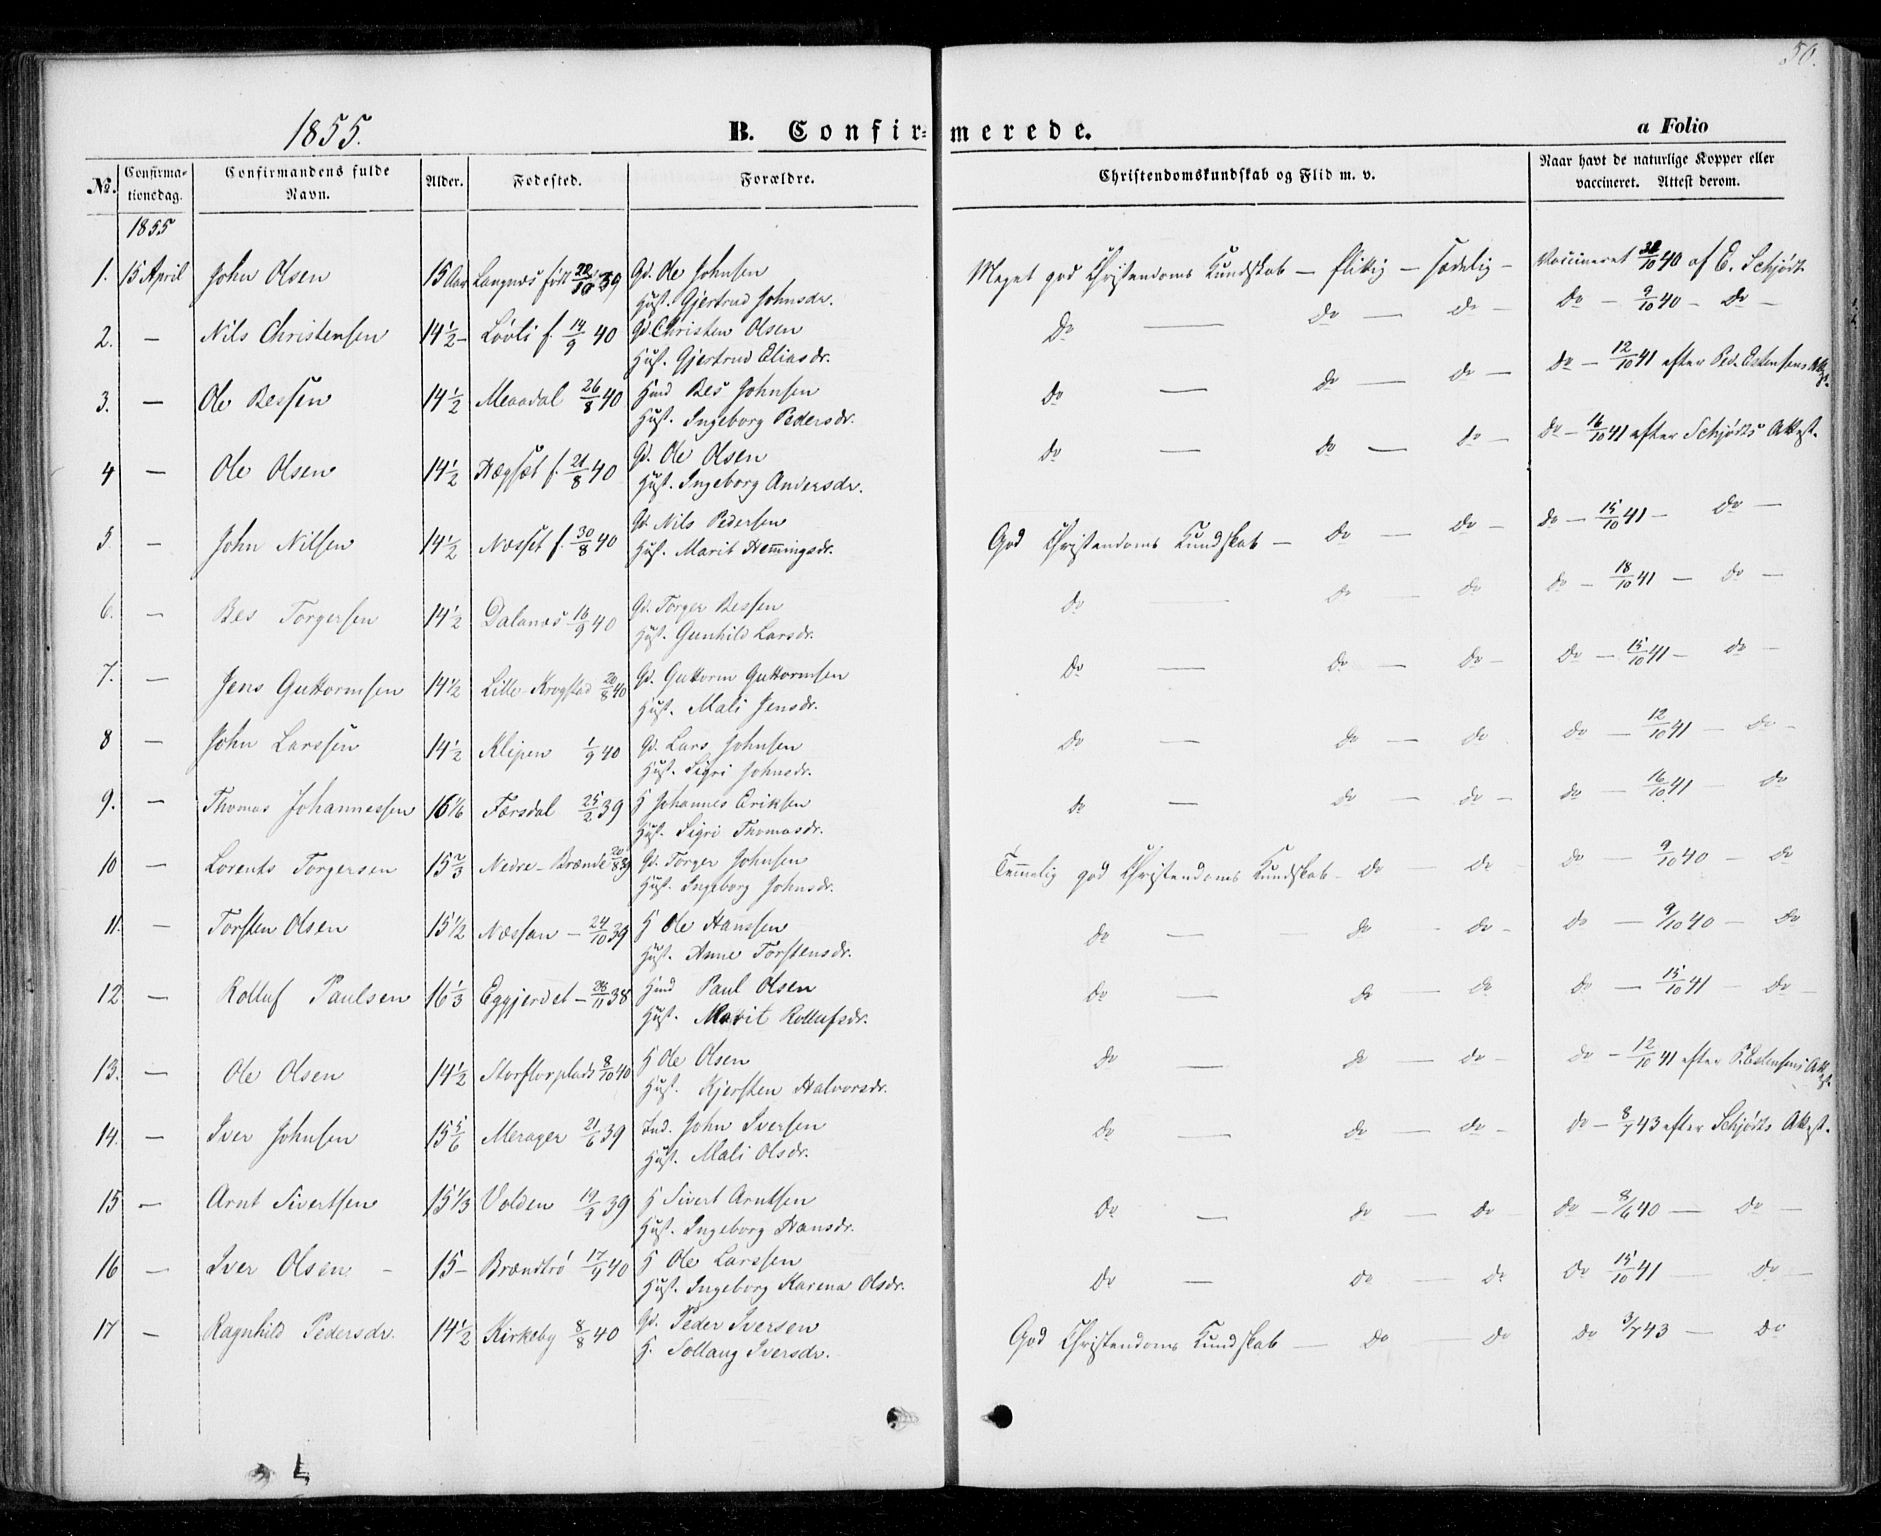 50.
1855.
B. Confir=merede.
a Folio
No. Confirma-tionsdag. Confirmandens fulde Navn. Alder. Fødested. Forældre. Christendomskundskab og Flid m. v. Naar havt de naturlige Kopper eller vaccineret. Attest derom.
1855
1. 15 April John Olsen 15 Aar Langnæs født 22/10 39 Gd. Ole Johnsen Meget god Christendoms Kundskab — flittig — sædelig — Vaccineret /10 40 af E. Schjødt
Hust. Gjertrud Johnsdr.
2. — Nils Christensen 14 1/2 — Løvli f. 14/9 40 Gd. Christen Olsen Do — do — do — Do — 9/10 40 — Do —
Hust. Gjertrud Eliasdr.
3. — Ole Bessen 14 1/2 Meaadal 26/8 40 Hmd Bes Johnsen Do — do — do — Do — 12/10 41 efter Ped. Estensens Attest.
Hust. Ingeborg Pedersdr.
4 — Ole Olsen 14 1/2 Hægset f. 21/8 40 Gd. Ole Olsen Do — do — do — Do — 16/10 41 efter Schjødts Attest.
Hust. Ingeborg Andersdr.
5 — John Nilsen 14 1/2 Næsset f. 30/8 40 Gd. Nils Pedersen God Christendoms Kundskab — do — do — Do — 15/10 41 — Do —
Hust. Marit Hemingsdr.
6. — Bes Torgersen 14 1/2 Dalanæs 16/9 40 Gd. Torger Bessen Do — do — do Do — 18/10 41 — Do —
Hust. Gunhild Larsdr.
7. — Jens Guttormsen 14 1/2 Lille-Krogstad 20/8 40 Gd. Guttorm Guttormsen Do — do — do — Do — 15/10 41 — Do —
Hust. Mali Jensdr.
8 — John Larssen 14 1/2 Klipen 1/9 40 Gd. Lars Johnsen Do — do — do Do — 12/10 41 — Do —
Hust. Sigri Johnsdr.
9. — Thomas Johannessen 16 1/6 Færsdal 25/2 39 H Johannes Eriksen Do — do — do — Do — 16/10 41 — Do
Hust. Sigri Thomasdr.
10 — Lorents Torgersen 15 2/3 Nedre-Brænde 20/8 39 Gd. Torger Johnsen Temelig god Christendoms Kundskab — do — do Do — 9/10 40 — Do
Hust. Ingeborg Johnsdr.
11. — Torsten Olsen 15 1/2 Næssan — 24/10 39 H Ole Hanssen Do — do — do — Do — 9/10 40 — Do
Hust. Anne Torstensdr.
12 — Rolluf Paulsen 16 1/3 Eggjerdet — 28/11 38 Hmd Paul Olsen Do — do — do Do — 15/10 41 — Do —
Hust. Marit Rollufsdr.
13. — Ole Olsen 14 1/2 Storflorplads 8/10 40 H Ole Olsen Do — do — do — Do — 12/10 41 efter P. Estensens Attest.
Hust. Kjersten Halvorsdr.
14. — Iver Johnsen 15 5/6 Merager 21/6 39 Ind. John Iversen Do — do — do — Do — 8/7 43 efter Schjødts Attest.
Hust. Mali Olsdr.
15 — Arnt Sivertsen 15 1/3 Volden 19/9 39 H Sivert Arntsen Do — do — do — Do — 8/6 40 — Do —
Hust. Ingeborg Hansdr.
16 — Iver Olsen — 15 — Brændtrø 17/9 40 H Ole Larssen Do — do — do Do 15/10 41 — Do —
Hust. Ingeborg Karena Olsdr.
17 — Ragnhild Pedersdr. 14 1/2 Kirkeby 8/8 40 Gd. Peder Iversen God Christendoms Kundskab — do — do Do 3/7 43 — Do
H. Sollaug Iversdr.